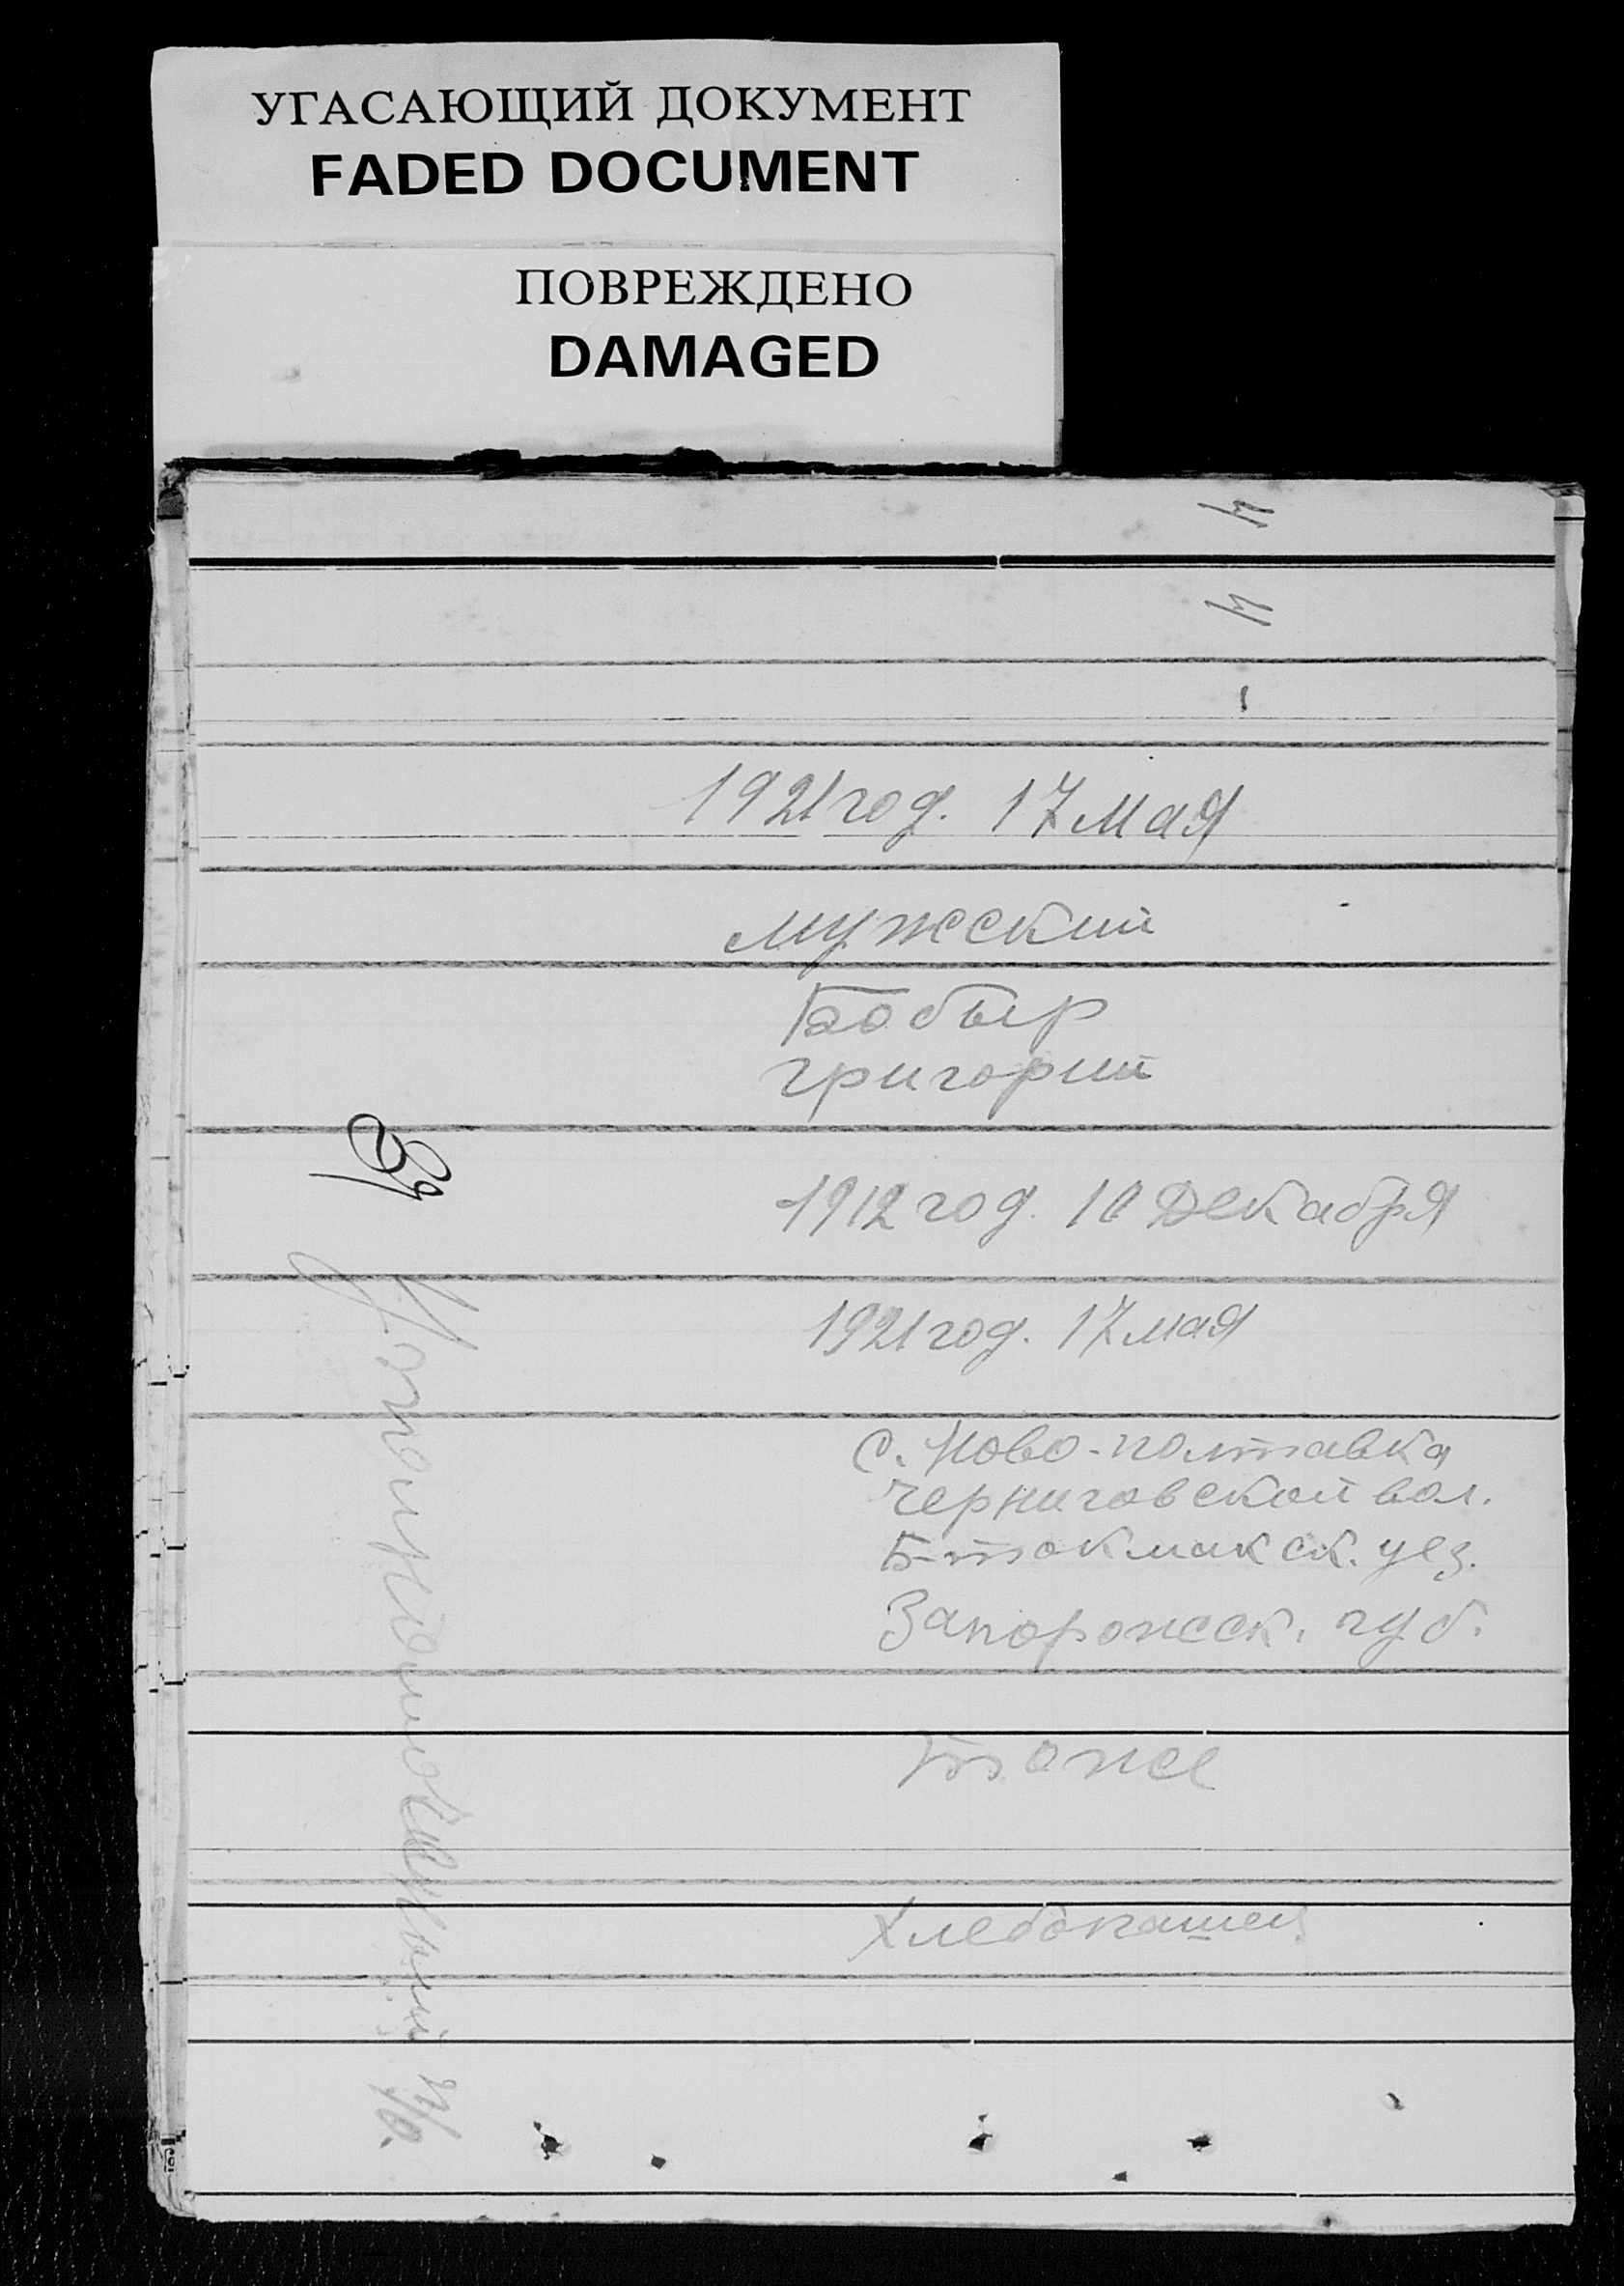 УГАСАЮЩИЙ ДОКУМЕНТ
FADED DOCUMENT
ПОВРЕЖДЕНО
DAMAGED
4
4
1921 год. 17 мая
мужский
Бобыр
григорий
1912 год. 10 Декабря
1921 год. 17 мая
с. Ново-полтавка
черниговской вол.
Б-токмакск. уез.
Запорожск. губ.
тоже
Хлебопашец